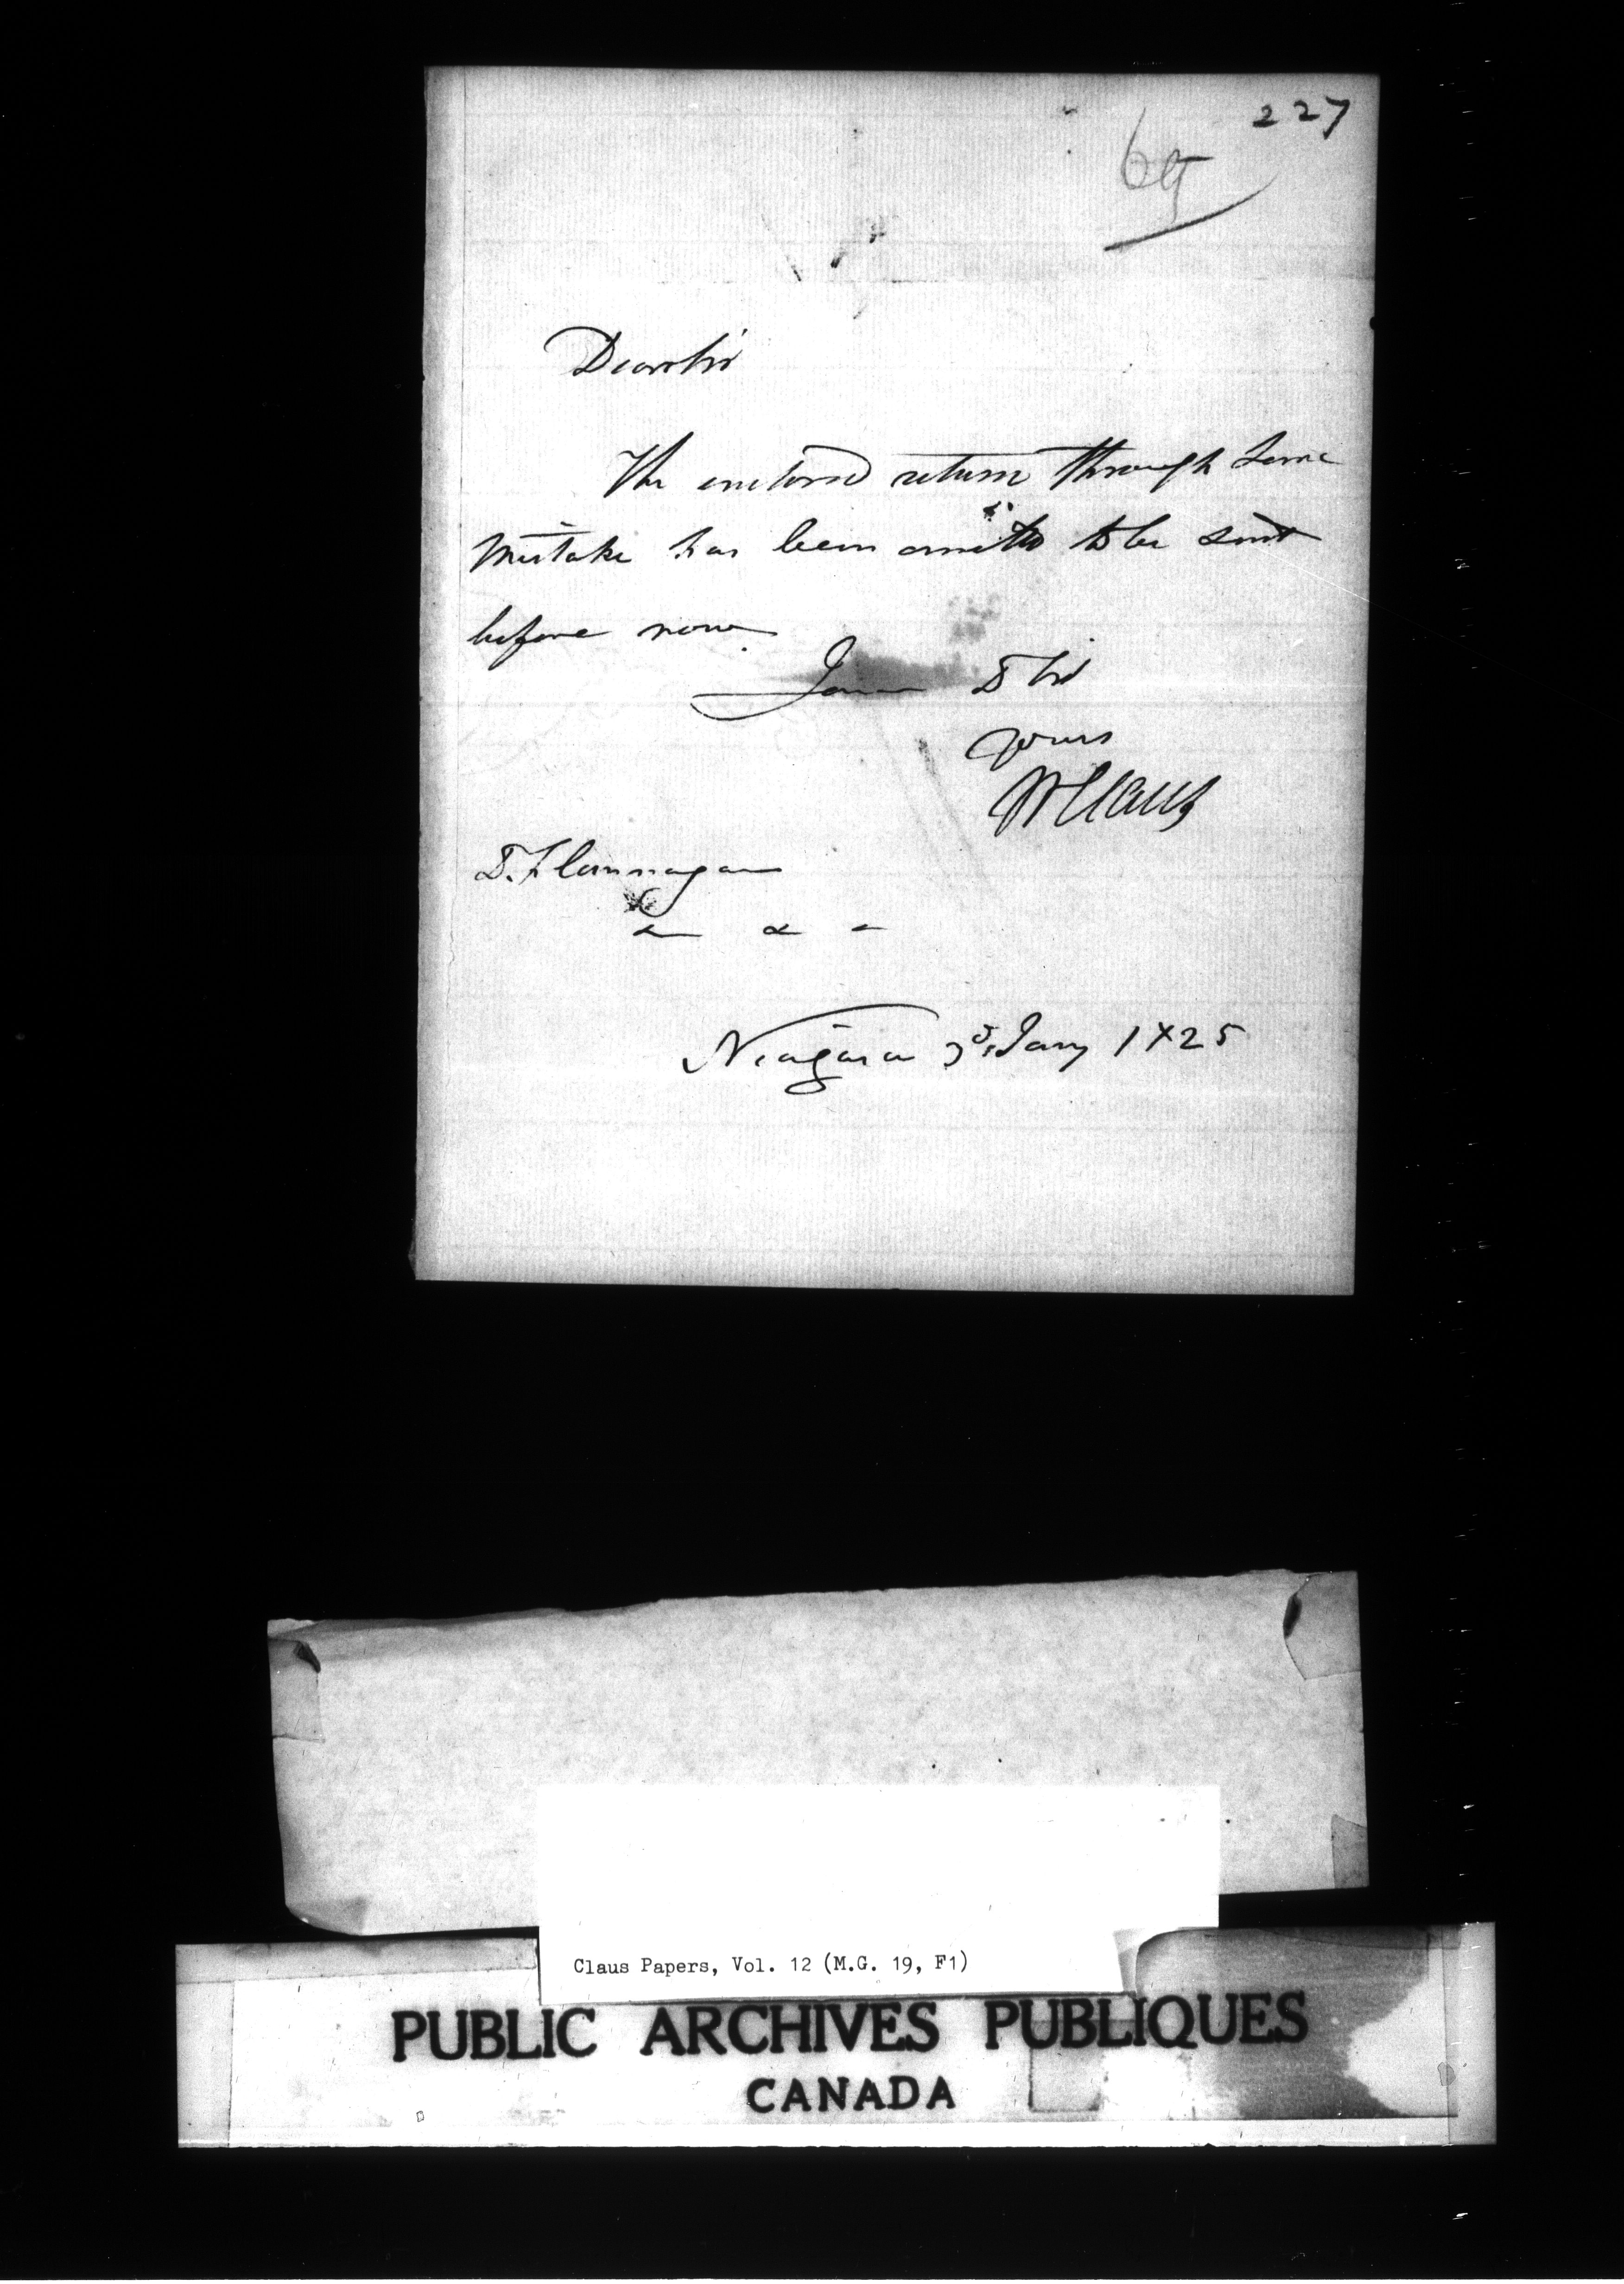 227
69
Dear Sir
The enclosed return through Some
Mistake has been omitted to be sent
before now
I am D Sir
Yours
W Claus
D. Flannagan
&c &c &c
Niagara 3d Jany 1825
Claus Papers, Vol. 12 (M.G. 19, F1)
PUBLIC ARCHIVES PUBLIQUES
CANADA